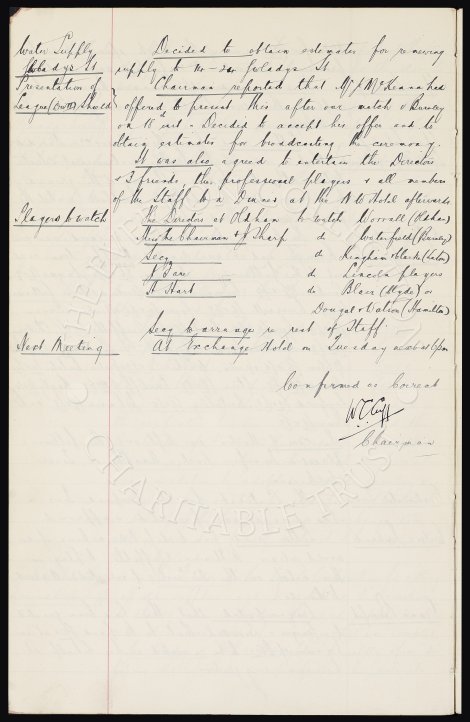 Water Supply Decided to obtain estimates for renewing
Gwladys St supply to Gwladys St
Presentation of Chairman reported that Mr J. McKenna had
League Shield offered to present this after our match v Burnley
on 18th inst. Decided to accept his offer and to
obtain estimates for broadcasting the ceremony.
It was also agreed to entertain the Directors
& friends, the professional players & all members
of the Staff to a Dinner at the Hotel afterwards
Players to watch The Directors at Oldham to watch Worrall (Oldham)
The Chairman & J Sharp do Waterfield (Burnley)
Secy do Kingham & Mack (Luton)
do Lincoln players
H Hart do Blair (Hyde) or
Dougal & Wilson (Hamilton)
Secy to arrange re rest of Staff.
Next Meeting At Exchange Hotel on Tuesday next at 6pm
Confirmed as Correct
W.C. Cuff
Chairman
THE EVERTON
CHARITABLE TRUST